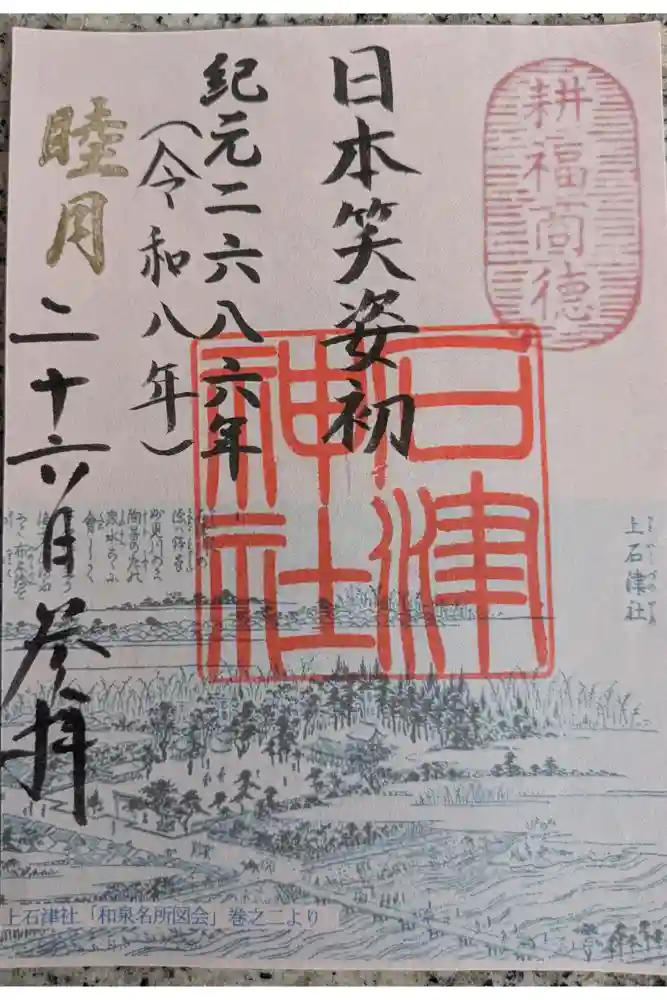 耕福商德
日本笑姿初
紀元二六八六年
(令和八年)
睦月
二十六日參拝
石津
神社
上石津社
上石津社「和泉名所図会」巻之二より